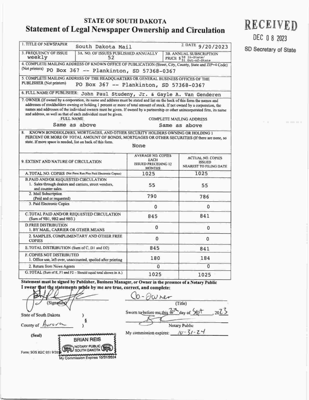 STATE OF SOUTH DAKOTA
Statement of Legal Newspaper Ownership and Circulation
RECEIVED
DEC 08 2023
SD Secretary of State
1. TITLE OF NEWSPAPER
South Dakota Mail
2. DATE
9/20/2023
3. FREQUENCY OF ISSUE
weekly
3A. NO. OF ISSUES PUBLISHED ANNUALLY
52
3B. ANNUAL SUBSCRIPTION PRICE
4. COMPLETE MAILING ADDRESS OF KNOWN OFFICE OF PUBLICATION (Street, City, County, State and ZIP+4 Code) (Not printers)
PO Box 367 -- Plankinton, SD 57368-0367
5. COMPLETE MAILING ADDRESS OF THE HEADQUARTERS OR GENERAL BUSINESS OFFICES OF THE PUBLISHER (Not printers)
PO Box 367 -- Plankinton, SD 57368-0367
6. FULL NAME OF PUBLISHER:
John Paul Studeny, Jr. & Gayle A. Van Genderen
7. OWNER (If owned by a corporation, its name and address must be stated and list on the back of this form the names and addresses of stockholders owning or holding 1 percent or more of total amount of stock. If not owned by a corporation, the names and addresses of the individual owners must be given. If owned by a partnership or other unincorporated firm, its name and address, as well as that of each individual must be given.)
FULL NAME
COMPLETE MAILING ADDRESS
Same as above
Same as above
8. KNOWN BONDHOLDERS, MORTGAGEES, AND OTHER SECURITY HOLDERS OWNING OR HOLDING 1 PERCENT OR MORE OF TOTAL AMOUNT OF BONDS, MORTGAGES OR OTHER SECURITIES (If there are none, so state. If more space is needed, list on back of this form.
None
9. EXTENT AND NATURE OF CIRCULATION
AVERAGE NO. COPIES EACH ISSUE PRECEDING 12 MONTHS
ACTUAL NO. COPIES ISSUED NEAREST TO FILING DATE
A. TOTAL NO. COPIES
1025
1025
B. PAID AND/OR REQUESTED CIRCULATION
1. Sales through dealers and carriers, street vendors, and counter sales
55
55
2. Mail Subscription (Paid and or requested)
790
786
3. Paid Electronic Copies
0
0
C. TOTAL PAID AND/OR REQUESTED CIRCULATION (Sum of 9B1, 9B2 and 9B3.)
845
841
D. FREE DISTRIBUTION
1. BY MAIL, CARRIER OR OTHER MEANS
0
0
2. SAMPLES, COMPLIMENTARY AND OTHER FREE COPIES
0
0
E. TOTAL DISTRIBUTION (Sum of C, D1 and D2)
845
841
F. COPIES NOT DISTRIBUTED
1. Office use, left over, unaccounted, spoiled after printing
180
184
2. Return from News Agents
0
0
G. TOTAL (Sum of E, F1 and F2 - Should equal total shown in A.)
1025
1025
Statement must be signed by Publisher, Business Manager, or Owner in the presence of a Notary Public
I swear that the statements made by me are true, correct, and complete:
(Signature)
Co-owner
(Title)
State of South Dakota
County of
(Seal)
BRIAN REIS
NOTARY PUBLIC
SOUTH DAKOTA
My Commission Expires 10/31/2024
Notary Public
My commission expires: